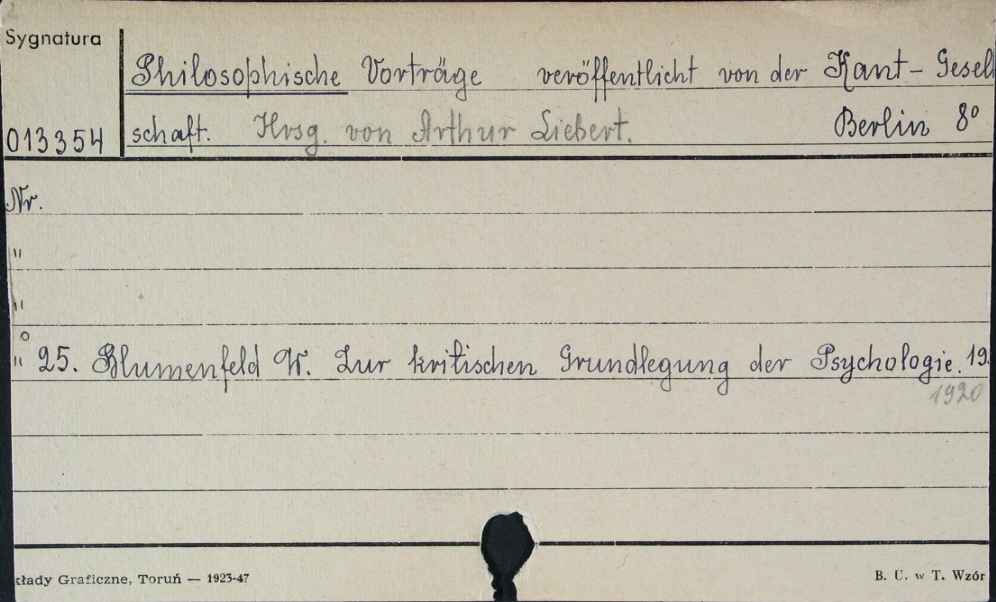 Sygnatura
Philosophische Vorträge veröffentlicht von der Kant-Gesell
013354 schaft. Hrsg. von Arthur Liebert. Berlin 8°
Nr.
"
"
" 25. Blumenfeld W. Zur kritischen Grundlegung der Psychologie. 19
1920
kłady Graficzne, Toruń — 1923-47 B. U. w T. Wzór